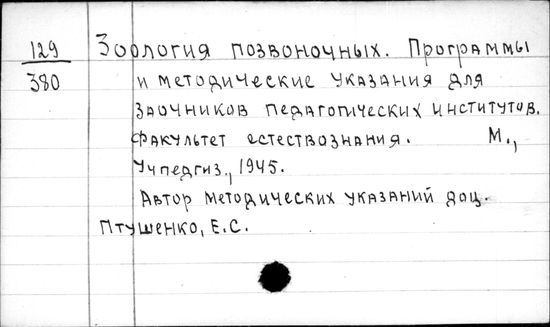 129
380
Зоология позвоночных. Программы
и методические указания для
заочников педагогических институтов.
Факультет естествознания. М.,
Учпедгиз, 1945.
Автор методических указаний доц.
Птушенко, Е.С.